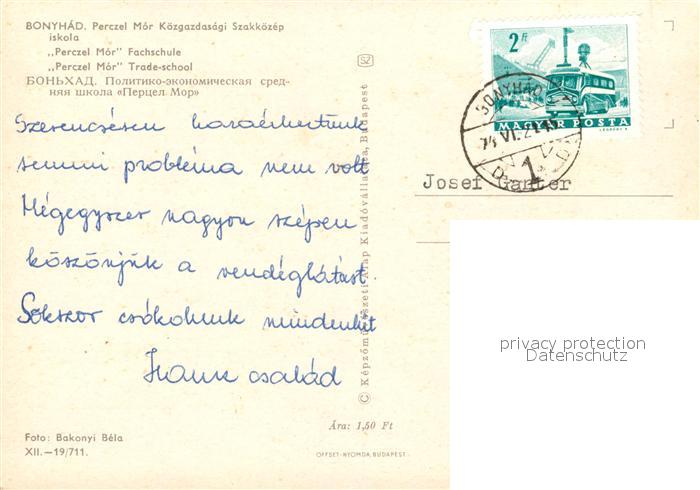 BONYHÁD. Perczel Mór Közgazdasági Szakközép
iskola
„Perczel Mór" Fachschule
„Perczel Mór" Trade-school
БОНЬХАД. Политико-экономическая сред-
няя школа «Перцел Мор»
Szerencsésen hazaérkeztünk
semmi probléma nem volt
Mégegyszer nagyon szépen
köszönjük a vendéglátást
Sokszor csókolunk mindenkit
család
Foto: Bakonyi Béla
XII.—19/711.
© Képzőművészeti Alap Kiadóvállalata, Budapest
Ára: 1,50 Ft
OFFSET-NYOMDA, BUDAPEST
2 Ft
MAGYAR POSTA
BONYHÁD
74 VI. 21.
1
Josef Ganter
privacy protection
Datenschutz